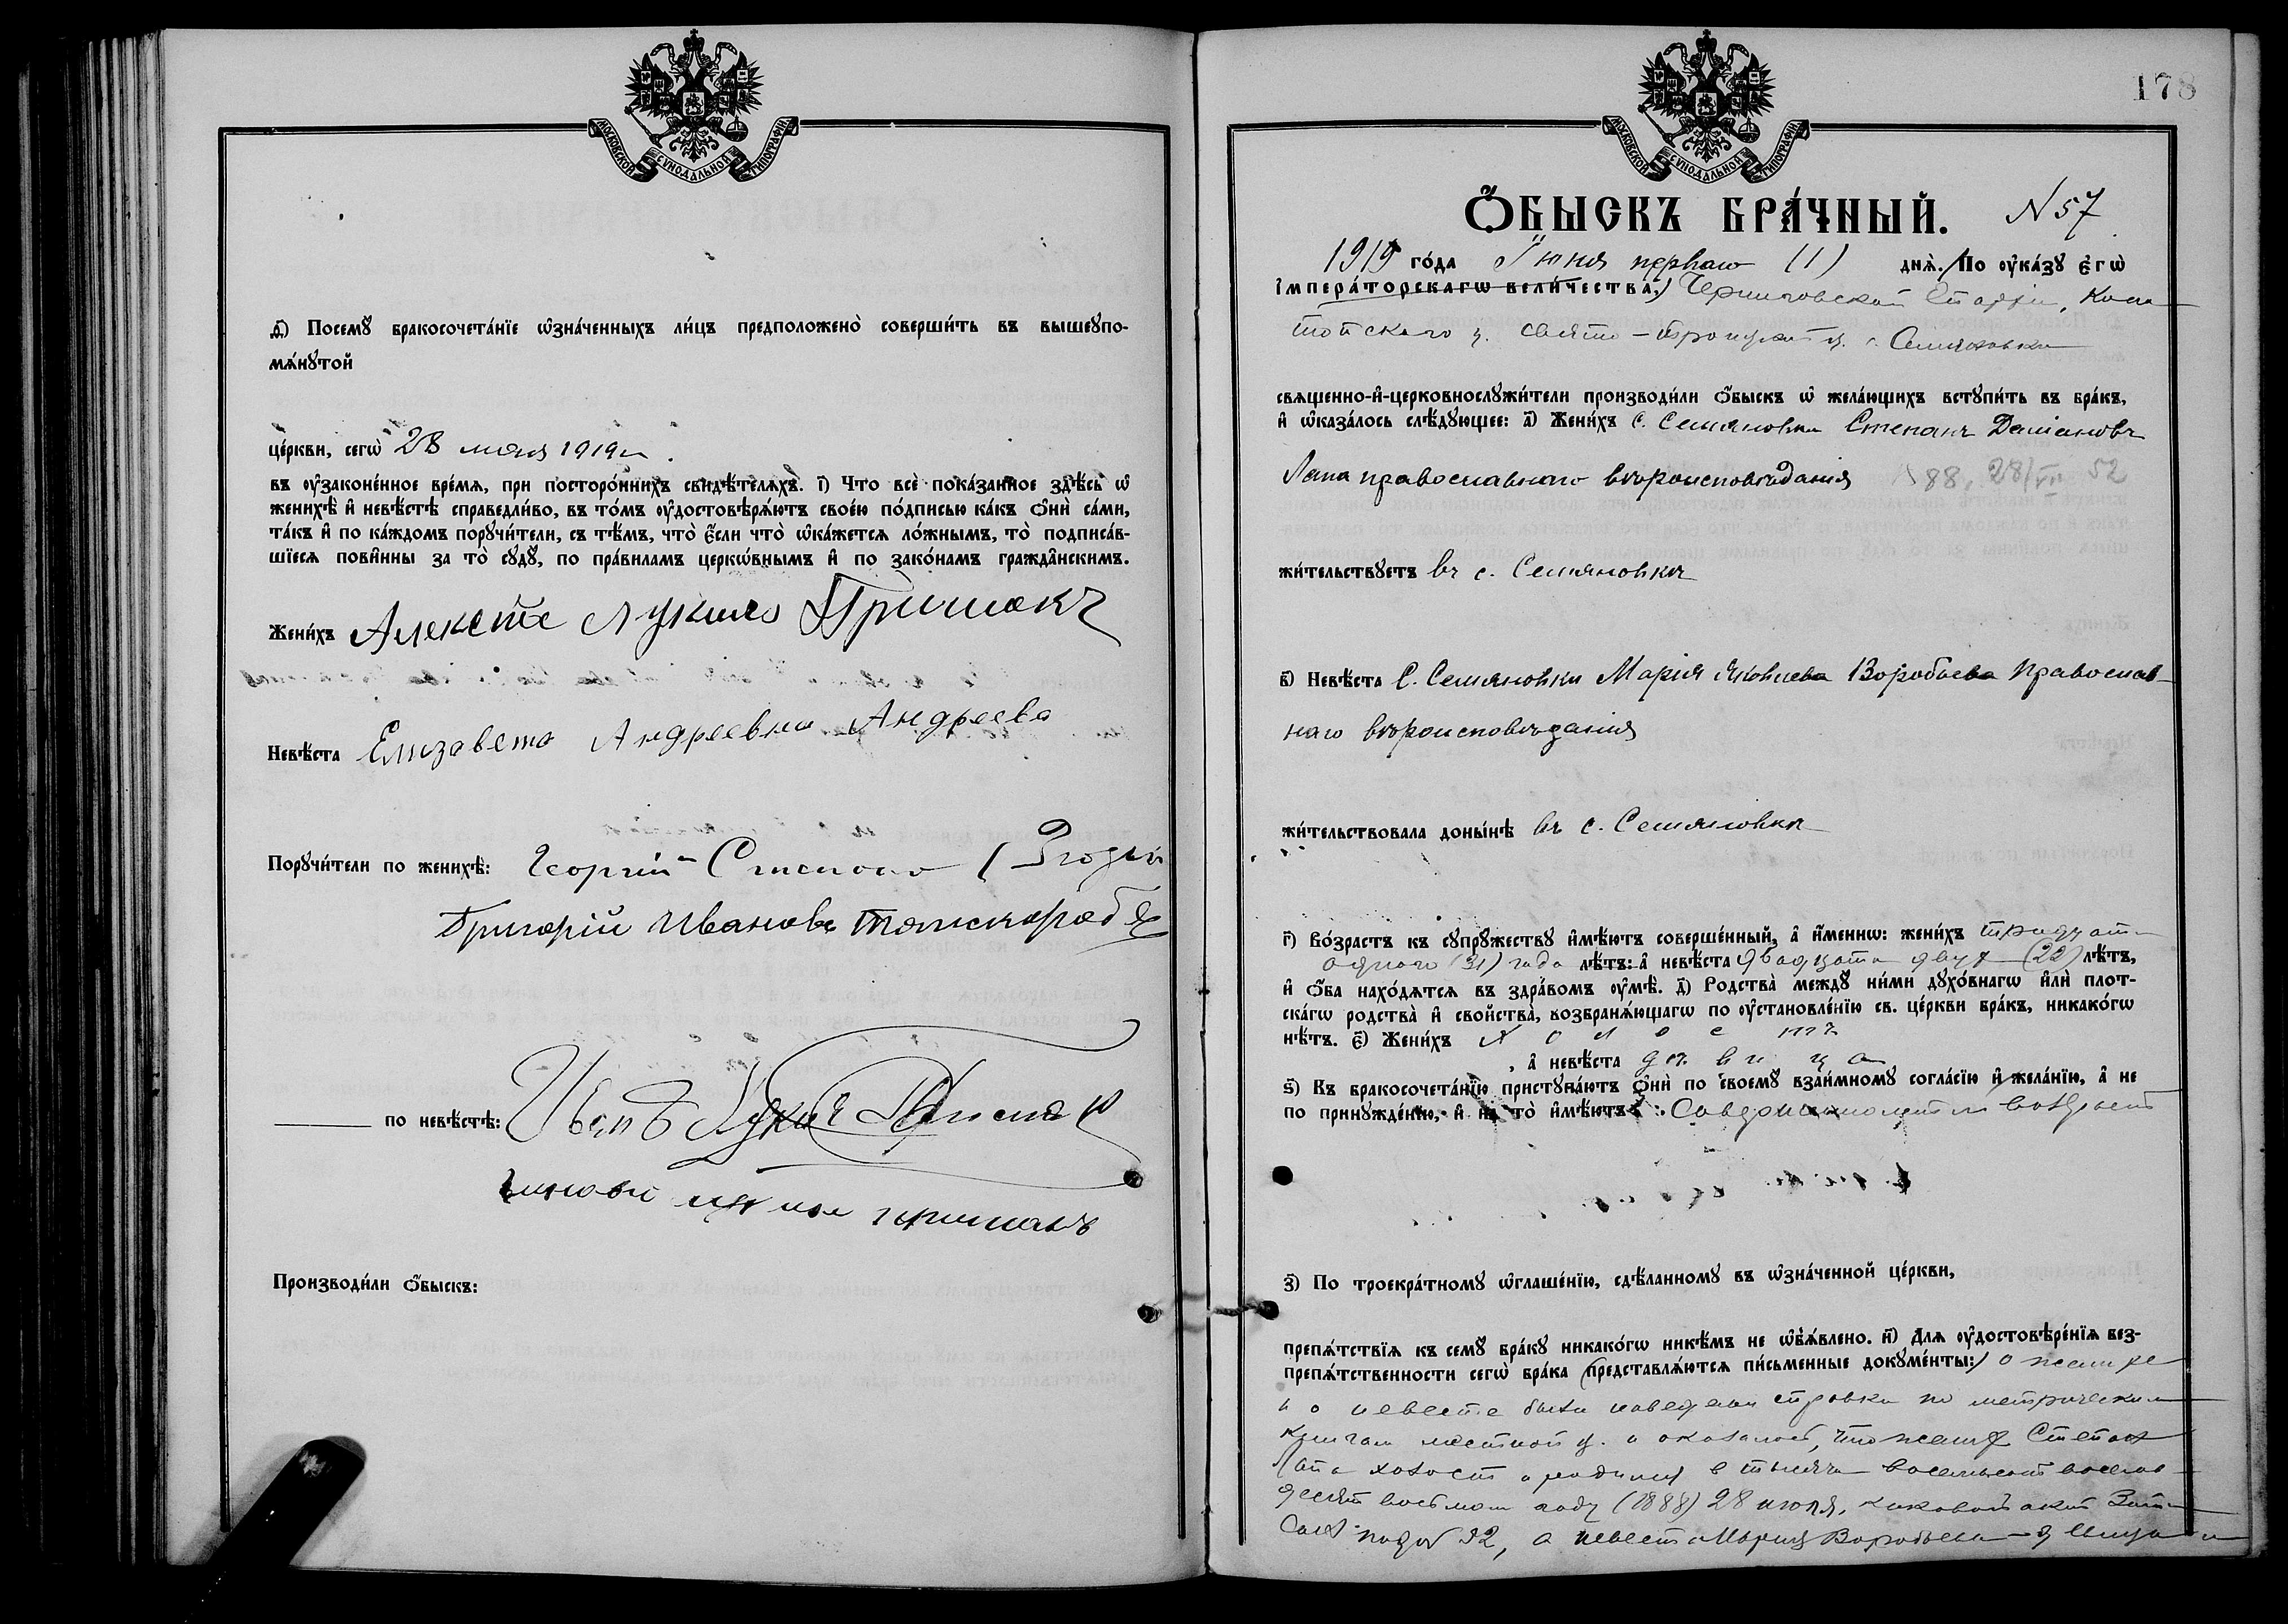 МОСКОВСКОЙ СѴНОДАЛЬНОЙ ТИПОГРАФІИ
ѳ҃) Посемꙋ бракосочета́нїе ѡ҆зна́ченныхъ ли́цъ предположено̀ соверши́ть въ вышеꙋпо-
мѧ́нꙋтой
це́ркви, сегѡ̀ 28 мая 1919 г.
въ оу҆законе́нное вре́мѧ, при посторо́ннихъ свидѣ́телѧхъ. і҃) Что всѐ пока́занное здѣ́сь ѡ҆
женихѣ̀ и҆ невѣ́стѣ справедли́во, въ то́мъ оу҆достовѣрѧ́ютъ свое́ю по́дписью ка́къ ѻ҆нѝ са́ми,
та́къ и҆ по ка́ждомъ порꙋчи́тели, съ тѣ́мъ, что̀ є҆́сли что̀ ѡ҆ка́жетсѧ ло́жнымъ, то̀ подписа́в-
шїесѧ пови́нны за то̀ сꙋдꙋ̀, по пра́виламъ церко́внымъ и҆ по зако́намъ гражда́нскимъ.
Жени́хъ Алексѣе Лукичъ Гришакъ
Невѣ́ста Елизавета Андреевна Андреева
Порꙋчи́тели по женихѣ̀: Георгій
Григорій Иванов
по невѣ́стѣ: Иванъ Лукичъ
Производи́ли ѻ҆́быскъ:
178
МОСКОВСКОЙ СѴНОДАЛЬНОЙ ТИПОГРАФІИ
Ѻ҆́БЫСКЪ БРА́ЧНЫЙ. N 57
1919 го́да Іюня перваго (1) днѧ̀. (По оу҆ка́зꙋ є҆гѡ̀
і҆мпера́торскагѡ вели́чества,) Черниговской Епархіи, Коно-
топского у. Свято-Троицкая ц. с. Семяновки
свѧщенно-и҆-церковнослꙋжи́тели производи́ли ѻ҆́быскъ ѡ҆ жела́ющихъ встꙋпи́ть въ бра́къ,
и҆ ѡ҆каза́лось слѣ́дꙋющее: а҃) Жени́хъ С. Семяновки Степанъ Даміановъ
Лапа православнаго вѣроисповѣданія 88, 28/VII 52
жи́тельствꙋетъ въ с. Семяновкѣ
в҃) Невѣ́ста С. Семяновки Марія Яковлева Воробьева Православ-
наго вѣроисповѣданія
жи́тельствовала доны́нѣ въ с. Семяновкѣ
г҃) Во́зрастъ къ сꙋпрꙋ́жествꙋ и҆мѣ́ютъ соверше́нный, а҆ и҆́менно: жени́хъ тридцати
одного (31) года лѣ́тъ: а҆ невѣ́ста двадцати двух (22) лѣ́тъ,
и҆ ѻ҆́ба нахо́дѧтсѧ въ здра́вомъ оу҆мѣ̀. д҃) Родства̀ междꙋ̀ ни́ми дꙋхо́внагѡ и҆лѝ плот-
ска́гѡ родства̀ и҆ сво́йства, возбранѧ́ющагѡ по оу҆становле́нїю св. це́ркви бра́къ, никако́гѡ
нѣ́тъ. є҃) Жени́хъ холостъ
, а҆ невѣ́ста дѣвица
ѕ҃) Къ бракосочета́нїю пристꙋпа́ютъ ѻ҆нѝ по своемꙋ̀ взаи́мномꙋ согла́сїю и҆ жела́нїю, а҆ не
по принꙋжде́нїю, и҆ на то̀ и҆мѣ́ютъ:
з҃) По троекра́тномꙋ ѡ҆глаше́нїю, сдѣ́ланномꙋ въ ѡ҆зна́ченной це́ркви,
препѧ́тствїѧ къ семꙋ̀ бра́кꙋ никако́гѡ никѣ́мъ не ѡ҆б̾ѧ́влено. и҃) Длѧ оу҆достовѣре́нїѧ без-
препѧ́тственности сегѡ̀ бра́ка (представлѧ́ютсѧ пи́сьменные докꙋме́нты:) о женихе
и о невесте были наведены справки по метрическим
книгам местной ц. и оказалось, что жених Степан
Лапа холост и родился в тысяча восемьсот восемь-
десят восьмом году (1888) 28 июля, каковой акт запи-
сан под № 52, а невеста Мария Воробьева – девица и